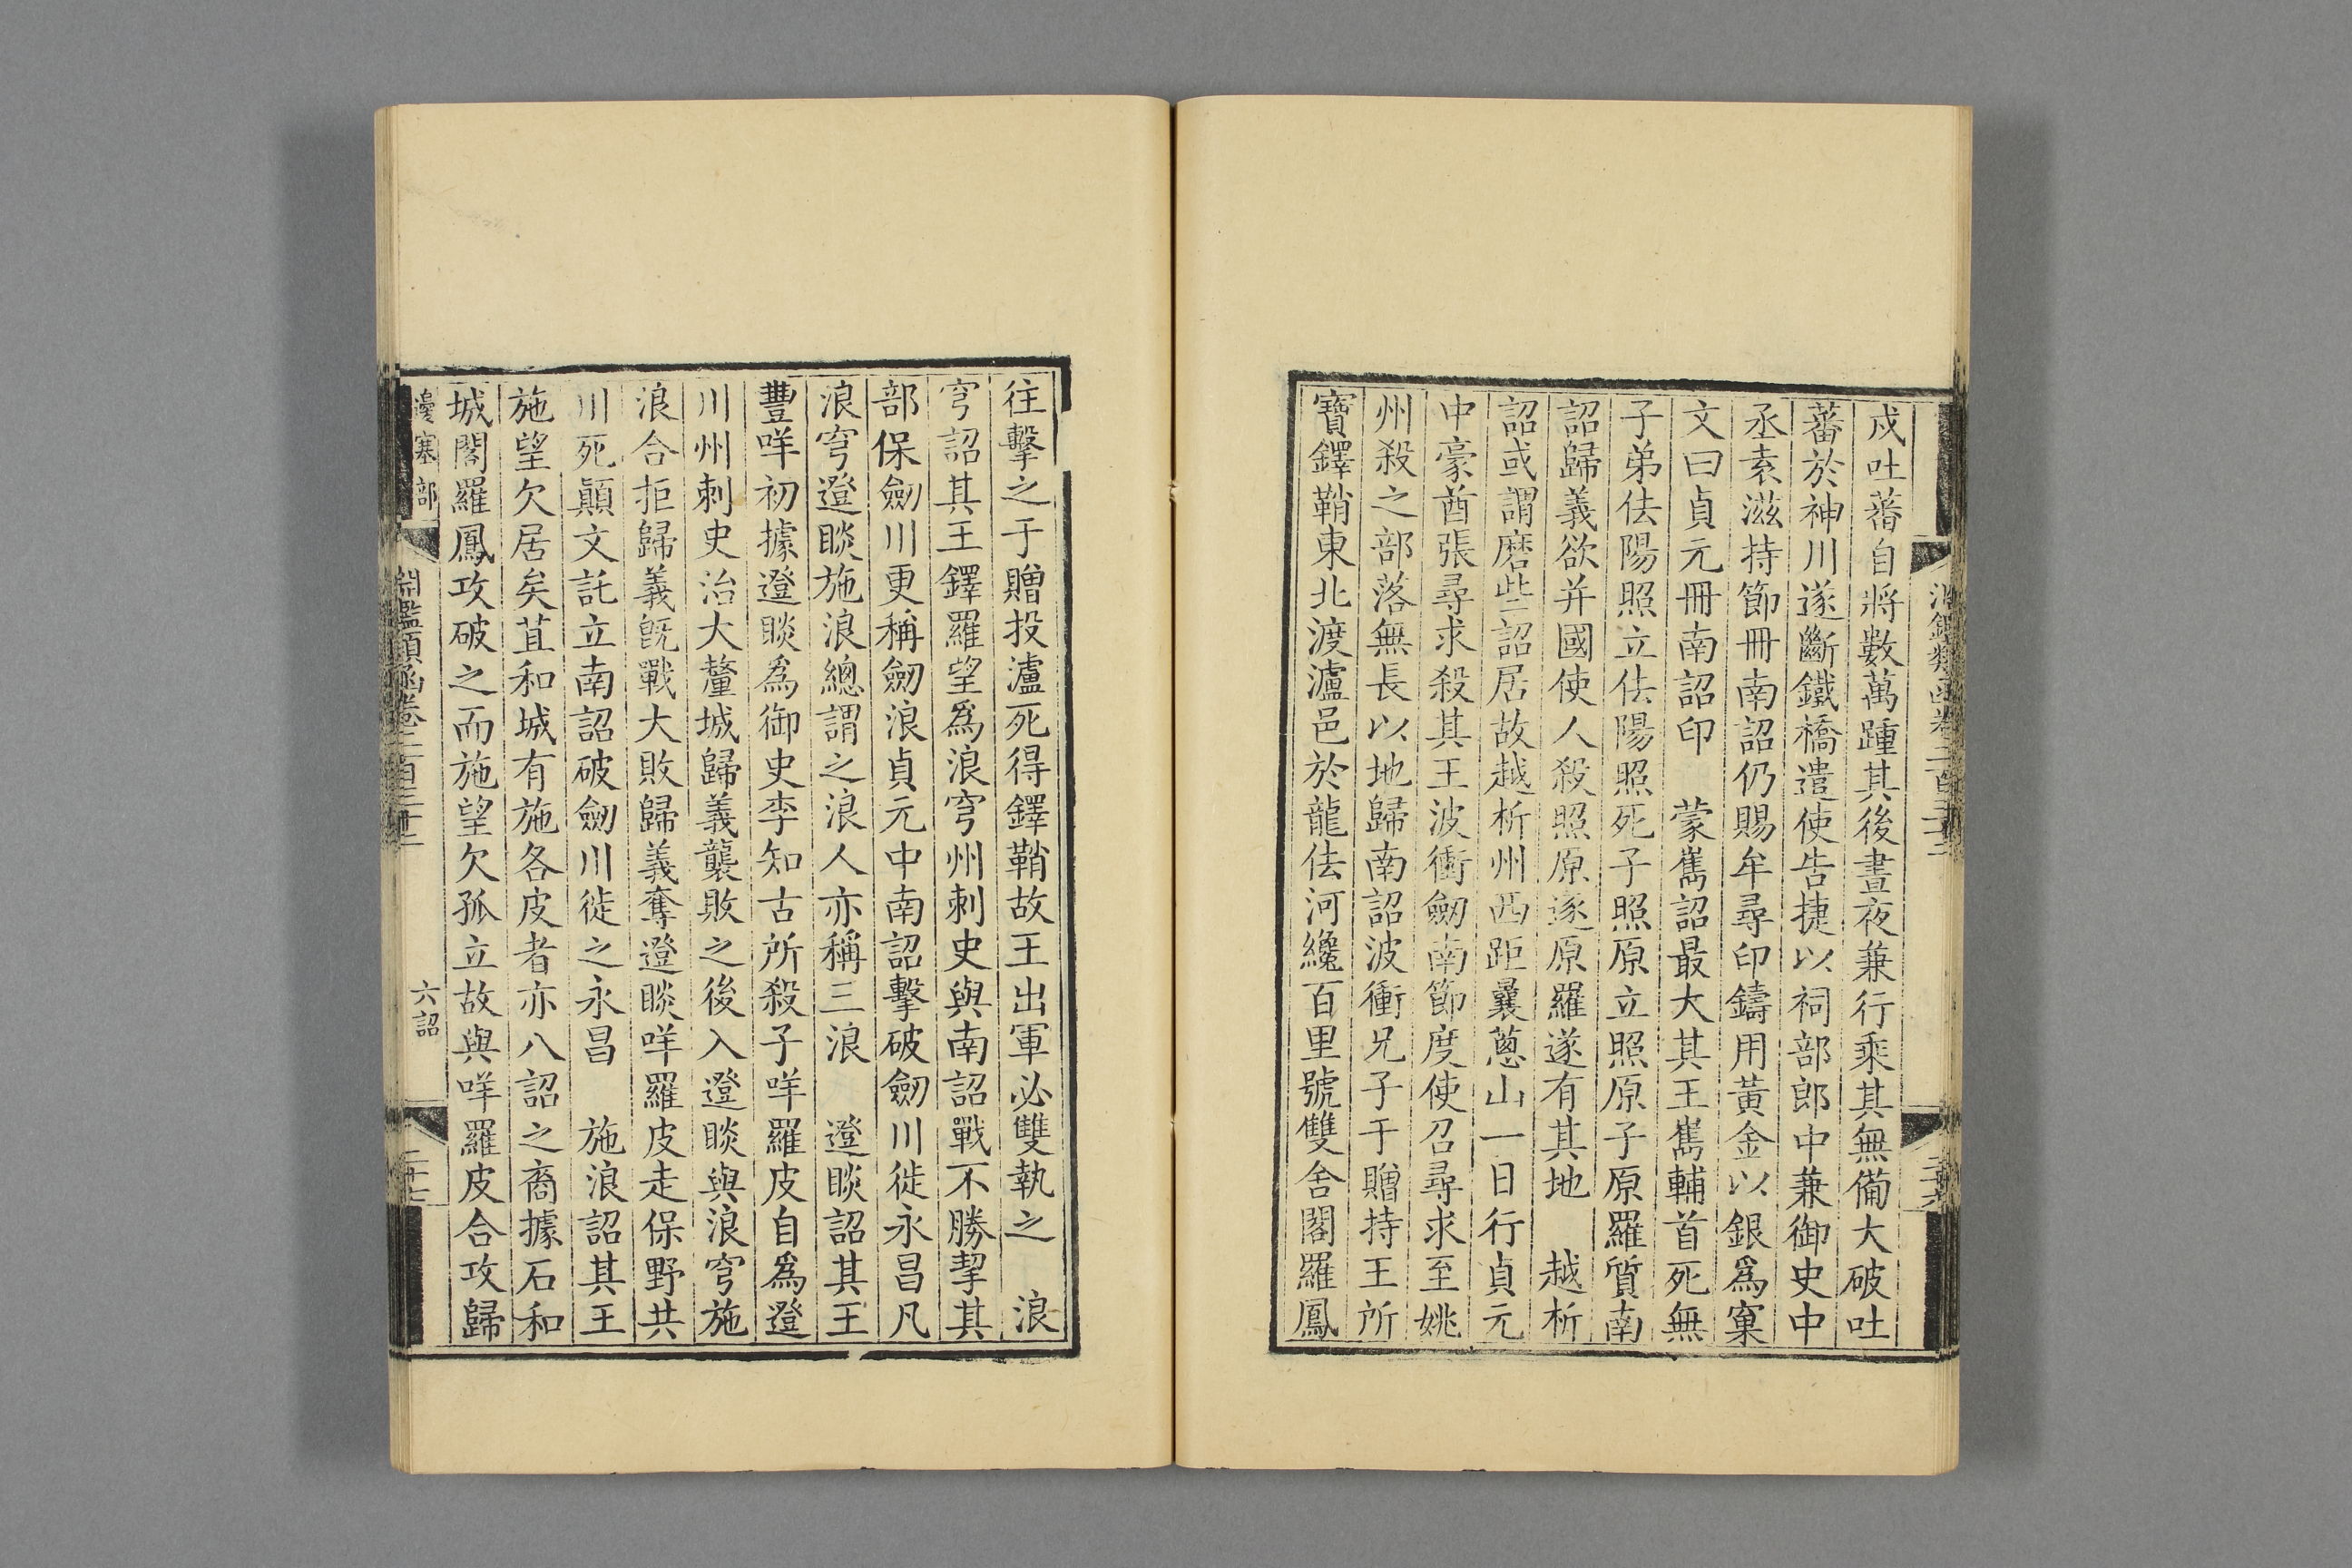 戍吐蕃自將數萬踵其後晝夜兼行乘其無備大破吐
蕃於神川遂斷鐵橋遣使告捷以祠部郎中兼御史中
丞袁滋持節冊南詔仍賜牟尋印鑄用黃金以銀爲窠
文曰貞元冊南詔印　蒙嶲詔最大其王嶲輔首死無
子弟佉陽照立佉陽照死子照原立照原子原羅質南
詔歸義欲并國使人殺照原逐原羅遂有其地　越析
詔或謂磨些詔居故越析州西距曩蔥山一日行貞元
中豪酋張尋求殺其王波衝劒南節度使召尋求至姚
州殺之部落無長以地歸南詔波衝兄子于贈持王所
寶鐸鞘東北渡瀘邑於龍佉河纔百里號雙舍閣羅鳳
往擊之于贈投瀘死得鐸鞘故王出軍必雙執之　浪
穹詔其王鐸羅望爲浪穹州刺史與南詔戰不勝挈其
部保劒川更稱劒浪貞元中南詔擊破劒川徙永昌凡
浪穹邆睒施浪總謂之浪人亦稱三浪　邆睒詔其王
豐咩初據邆睒爲御史李知古所殺子咩羅皮自爲邆
川州刺史治大釐城歸義襲敗之後入邆睒與浪穹施
浪合拒歸義旣戰大敗歸義奪邆睒咩羅皮走保野共
川死顚文託立南詔破劒川徙之永昌　施浪詔其王
施望欠居矣苴和城有施各皮者亦八詔之裔據石和
城閣羅鳳攻破之而施望欠孤立故與咩羅皮合攻歸
邊塞部
淵鑑類函卷二百三十二
六詔
二十七